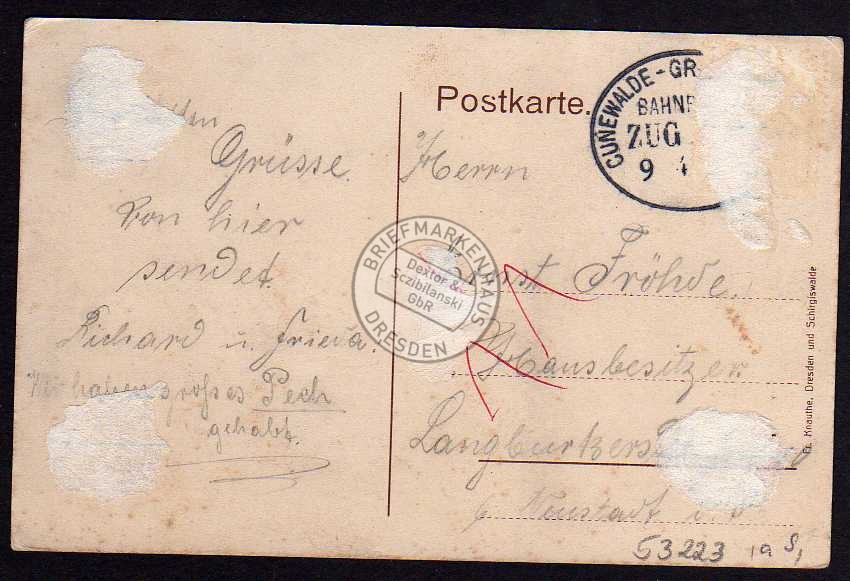 Postkarte.
CUNEWALDE-GR
BAHNP
ZUG
9 4
Grüsse.
von hier
sendet.
Richard u. Frieda.
Wir haben grosses Pech
gehabt.
Herrn
Ernst Fröhde.
Hausbesitzer
Langburkers
b/ Neustadt
BRIEFMARKENHAUS
Dextor &
Sczibilanski
GbR
DRESDEN
Fr. Knauthe, Dresden und Schirgiswalde
53223 1a S,